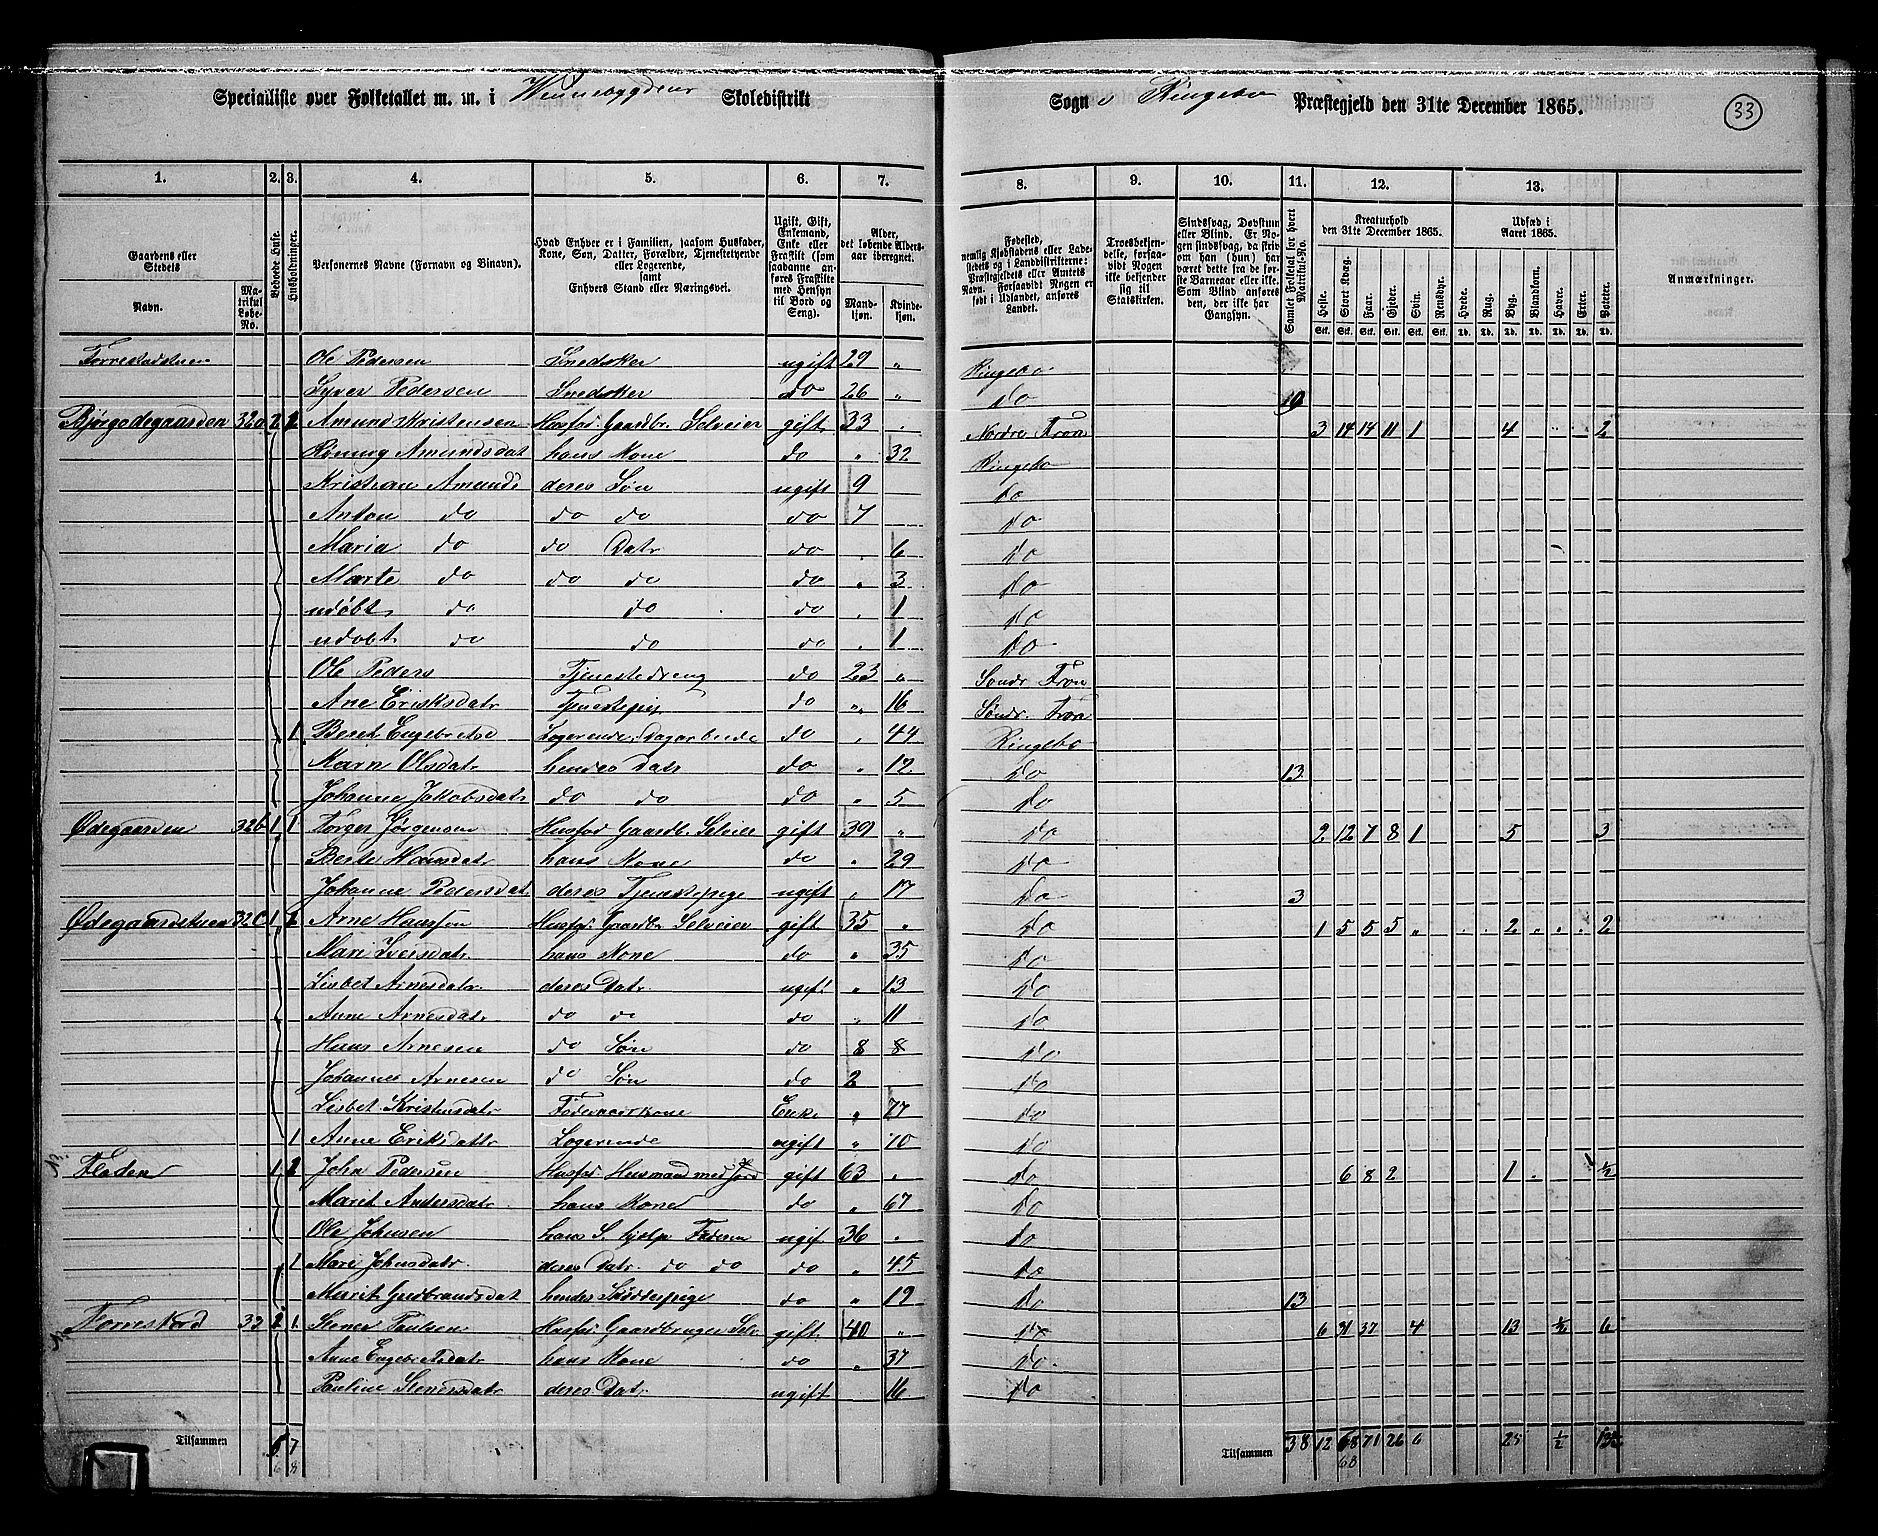 Specialliste over Folketallet m. m. i Skoledistrikt Sogn i Ringebo Præstegjeld den 31te December 1865. 33
1. 2. 3. 4. 5. 6. 7. 8. 9. 10. 11. 12. 13.
Gaardens eller Stedets
Navn. Matrikul Løbe-No.
Beboede Huse.
Husholdninger.
Personernes Navne (Fornavn og Binavn).
Hvad Enhver er i Familien, saasom Husfader, Kone, Søn, Datter, Forældre, Tjenestetyende eller Logerende, samt Enhvers Stand eller Næringsvei.
Ugift, Gift, Enkemand, Enke eller Fraskilt (som saadanne anføres Fraskilte med Hensyn til Bord og Seng).
Alder, det løbende Aldersaar iberegnet.
Mandkjøn. Kvindekjøn.
Fødested, nemlig Kjøbstadens eller Ladestedets og i Landdistrikterne: Præstegjeldets eller Amtets Navn. Forsaavidt Nogen er født i Udlandet, anføres Landet.
Troesbekjendelse, forsaavidt Nogen ikke bekjender sig til Statskirken.
Sindssvag, Døvstum eller Blind. Er Nogen sindssvag, da skrives om han (hun) har været dette fra de første Barneaar eller ikke. Som Blind anføres den, der ikke har Gangsyn.
Samlet Folketal for hvert Matrikul-No.
Kreaturhold den 31te December 1865.
Heste. Stort Kvæg. Faar. Gjeder. Svin. Rensdyr.
Udsæd i Aaret 1865.
Hvede. Rug. Byg. Blandkorn. Havre. Erter. Poteter.
Anmærkninger.
Ole Pedersen Snedsker ugift 29 " Ringebo
Syver Pedersen Snedsker do 26 " do
Bjørgodegaarden 32a 2 1 Amund Kristensen Husfad. Gaardbr. Selveier gift 33 Nordre Fron 3 14 14 11 1 4 2
Rønnug Amundsdat hans Kone do " 32 Ringebo
Kristian Amunds deres Søn ugift 9 do
Anton do do do do 7 do
Maria do do Datr do 6 do
Marte do do do do " 3 do
udøbt do do do 1 do
udøbt do do do 1 do
Ole Peders Tjenestedreng do 23 " Søndr Fron
Ane Eriksdatr Tjenestepig do " 16 Søndr. Fron
1 Berit Engebretsd Logerende, Dagarbeide do " 44 Ringebo
Marn Olsdatr hendes Datr do " 12 do 13
Johanne Jakobsdatr do do do " 5 do
Ødegaarden 32b 1 1 Torger Jørgensen Husfad Gaardb. Selveier gift 39 " do 2 12 7 8 1 5 3
Berte Hansdatr hans Kone do " 29 do
Johanne Pedersdat deres Tjenestepige ugift " 17 do 3
Ødegaardstuen 32c 1 1 Arne Hanssen Husfad. Gaardbr Selveier gift 35 " do 1 5 5 5 " 2 2
Mari Iversdatr hans Kone do " 35 do
Lisbet Arnesdatr deres Datr ugift " 13 do
Anne Arnesdatr do do do " 11 do
Hans Arnesen do Søn do 8 8 do
Johannes Arnesen do Søn do 2 do
Lisbet Kristensdatr Føderaadkone Enke " 77 do
1 Anne Eriksdatr Logerende ugift " 70 do
Fladen 1 1 John Pedersen Husfad. Husmand med Jord gift 63 " do 6 8 2 1 ½
Marit Andersdatr hans Kone do " 67 do
Ole Johnsen hans S. hjelpr Faderen ugif 36 " do
1 Mari Johnsdatr deres Datr do do do " 45 do
Marit Gudbrandsdat hendes do " 19 do 13
33 2 1 Stener Paulsen Husfad. Gaardbruger Selv. gift 40 " do 6 31 37 4 13 ½ 6
Anne Engebretsdatr hans Kone do " 37 do
Pauline Stenersdatr deres Datr ugift 16 do
Tilsammen 5 7 Tilsammen 38 12 68 71 26 6 25 ½
6 8 68